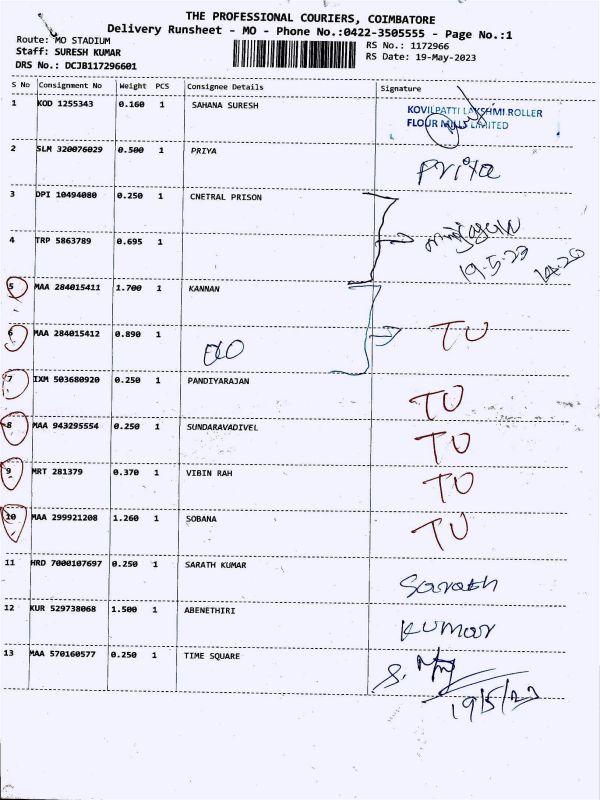 THE PROFESSIONAL COURIERS, COIMBATORE
Delivery Runsheet - MO - Phone No.:0422-3505555 - Page No.:1
Route: MO STADIUM
Staff: SURESH KUMAR
DRS No.: DCJB117296601
RS No.: 1172966
RS Date: 19-May-2023
S No Consignment No Weight PCS Consignee Details Signature
1 KOD 1255343 0.160 1 SAHANA SURESH
KOVILPATTI LAKSHMI ROLLER
FLOUR MILLS LIMITED
2 SLM 320076029 0.500 1 PRIYA Priya
3 DPI 10494080 0.250 1 CNETRAL PRISON
4 TRP 5863789 0.695 1
19.5.23 14.20
5 MAA 284015411 1.700 1 KANNAN
6 MAA 284015412 0.890 1 TU
7 IXM 503680920 0.250 1 PANDIYARAJAN TU
8 MAA 943295554 0.250 1 SUNDARAVADIVEL TU
9 MRT 281379 0.370 1 VIBIN RAH TU
10 MAA 299921208 1.260 1 SOBANA TU
11 HRD 7000107697 0.250 1 SARATH KUMAR Sarath
12 KUR 529738068 1.500 1 ABENETHIRI Kumar
13 MAA 570160577 0.250 1 TIME SQUARE
19/5/23